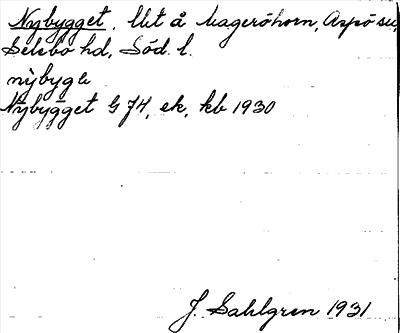 Nybygget. Utt å Mageröhorn, Aspö sn,
Selebo hd, Söd. l.
nỳbygḙ
Nybygget G 74, ek, kb 1930
J. Sahlgren 1931